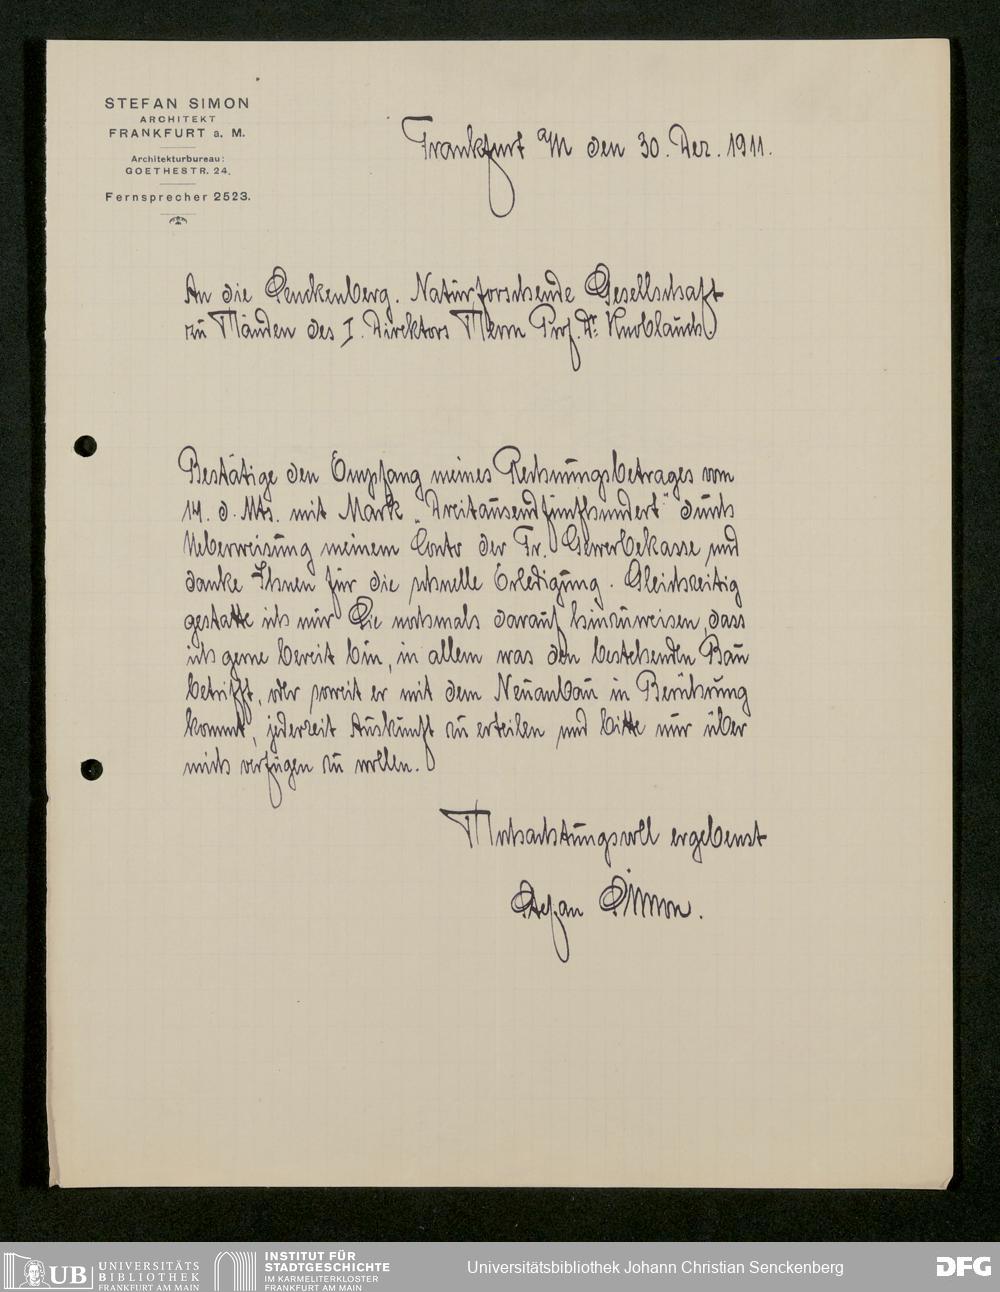 STEFAN SIMON
ARCHITEKT
FRANKFURT a. M.
Architekturbureau:
GOETHESTR. 24.
Fernsprecher 2523.
Frankfurt a/M den 30. Dez. 1911.
An die Senckenberg. Naturforschende Gesellschaft
zu Händen des I. Direktors Herrn Prof. Dr. Knoblauch
Bestätige den Empfang meines Rechnungsbetrages vom
14. d. Mts. mit Mark „Dreitausendfünfhundert" durch
Ueberweisung meinem Conto der Fr. Gewerbekasse und
danke Ihnen für die schnelle Erledigung. Gleichzeitig
gestatte ich mir Sie nochmals darauf hinzuweisen, dass
ich gerne bereit bin, in allem was den bestehenden Bau
betrifft, oder soweit er mit dem Neuanbau in Berührung
kommt, jederzeit Auskunft zu erteilen und bitte nur über
mich verfügen zu wollen.
Hochachtungsvoll ergebenst
Stefan Simon.
UB UNIVERSITÄTS
BIBLIOTHEK
FRANKFURT AM MAIN
INSTITUT FÜR
STADTGESCHICHTE
IM KARMELITERKLOSTER
FRANKFURT AM MAIN
Universitätsbibliothek Johann Christian Senckenberg
DFG